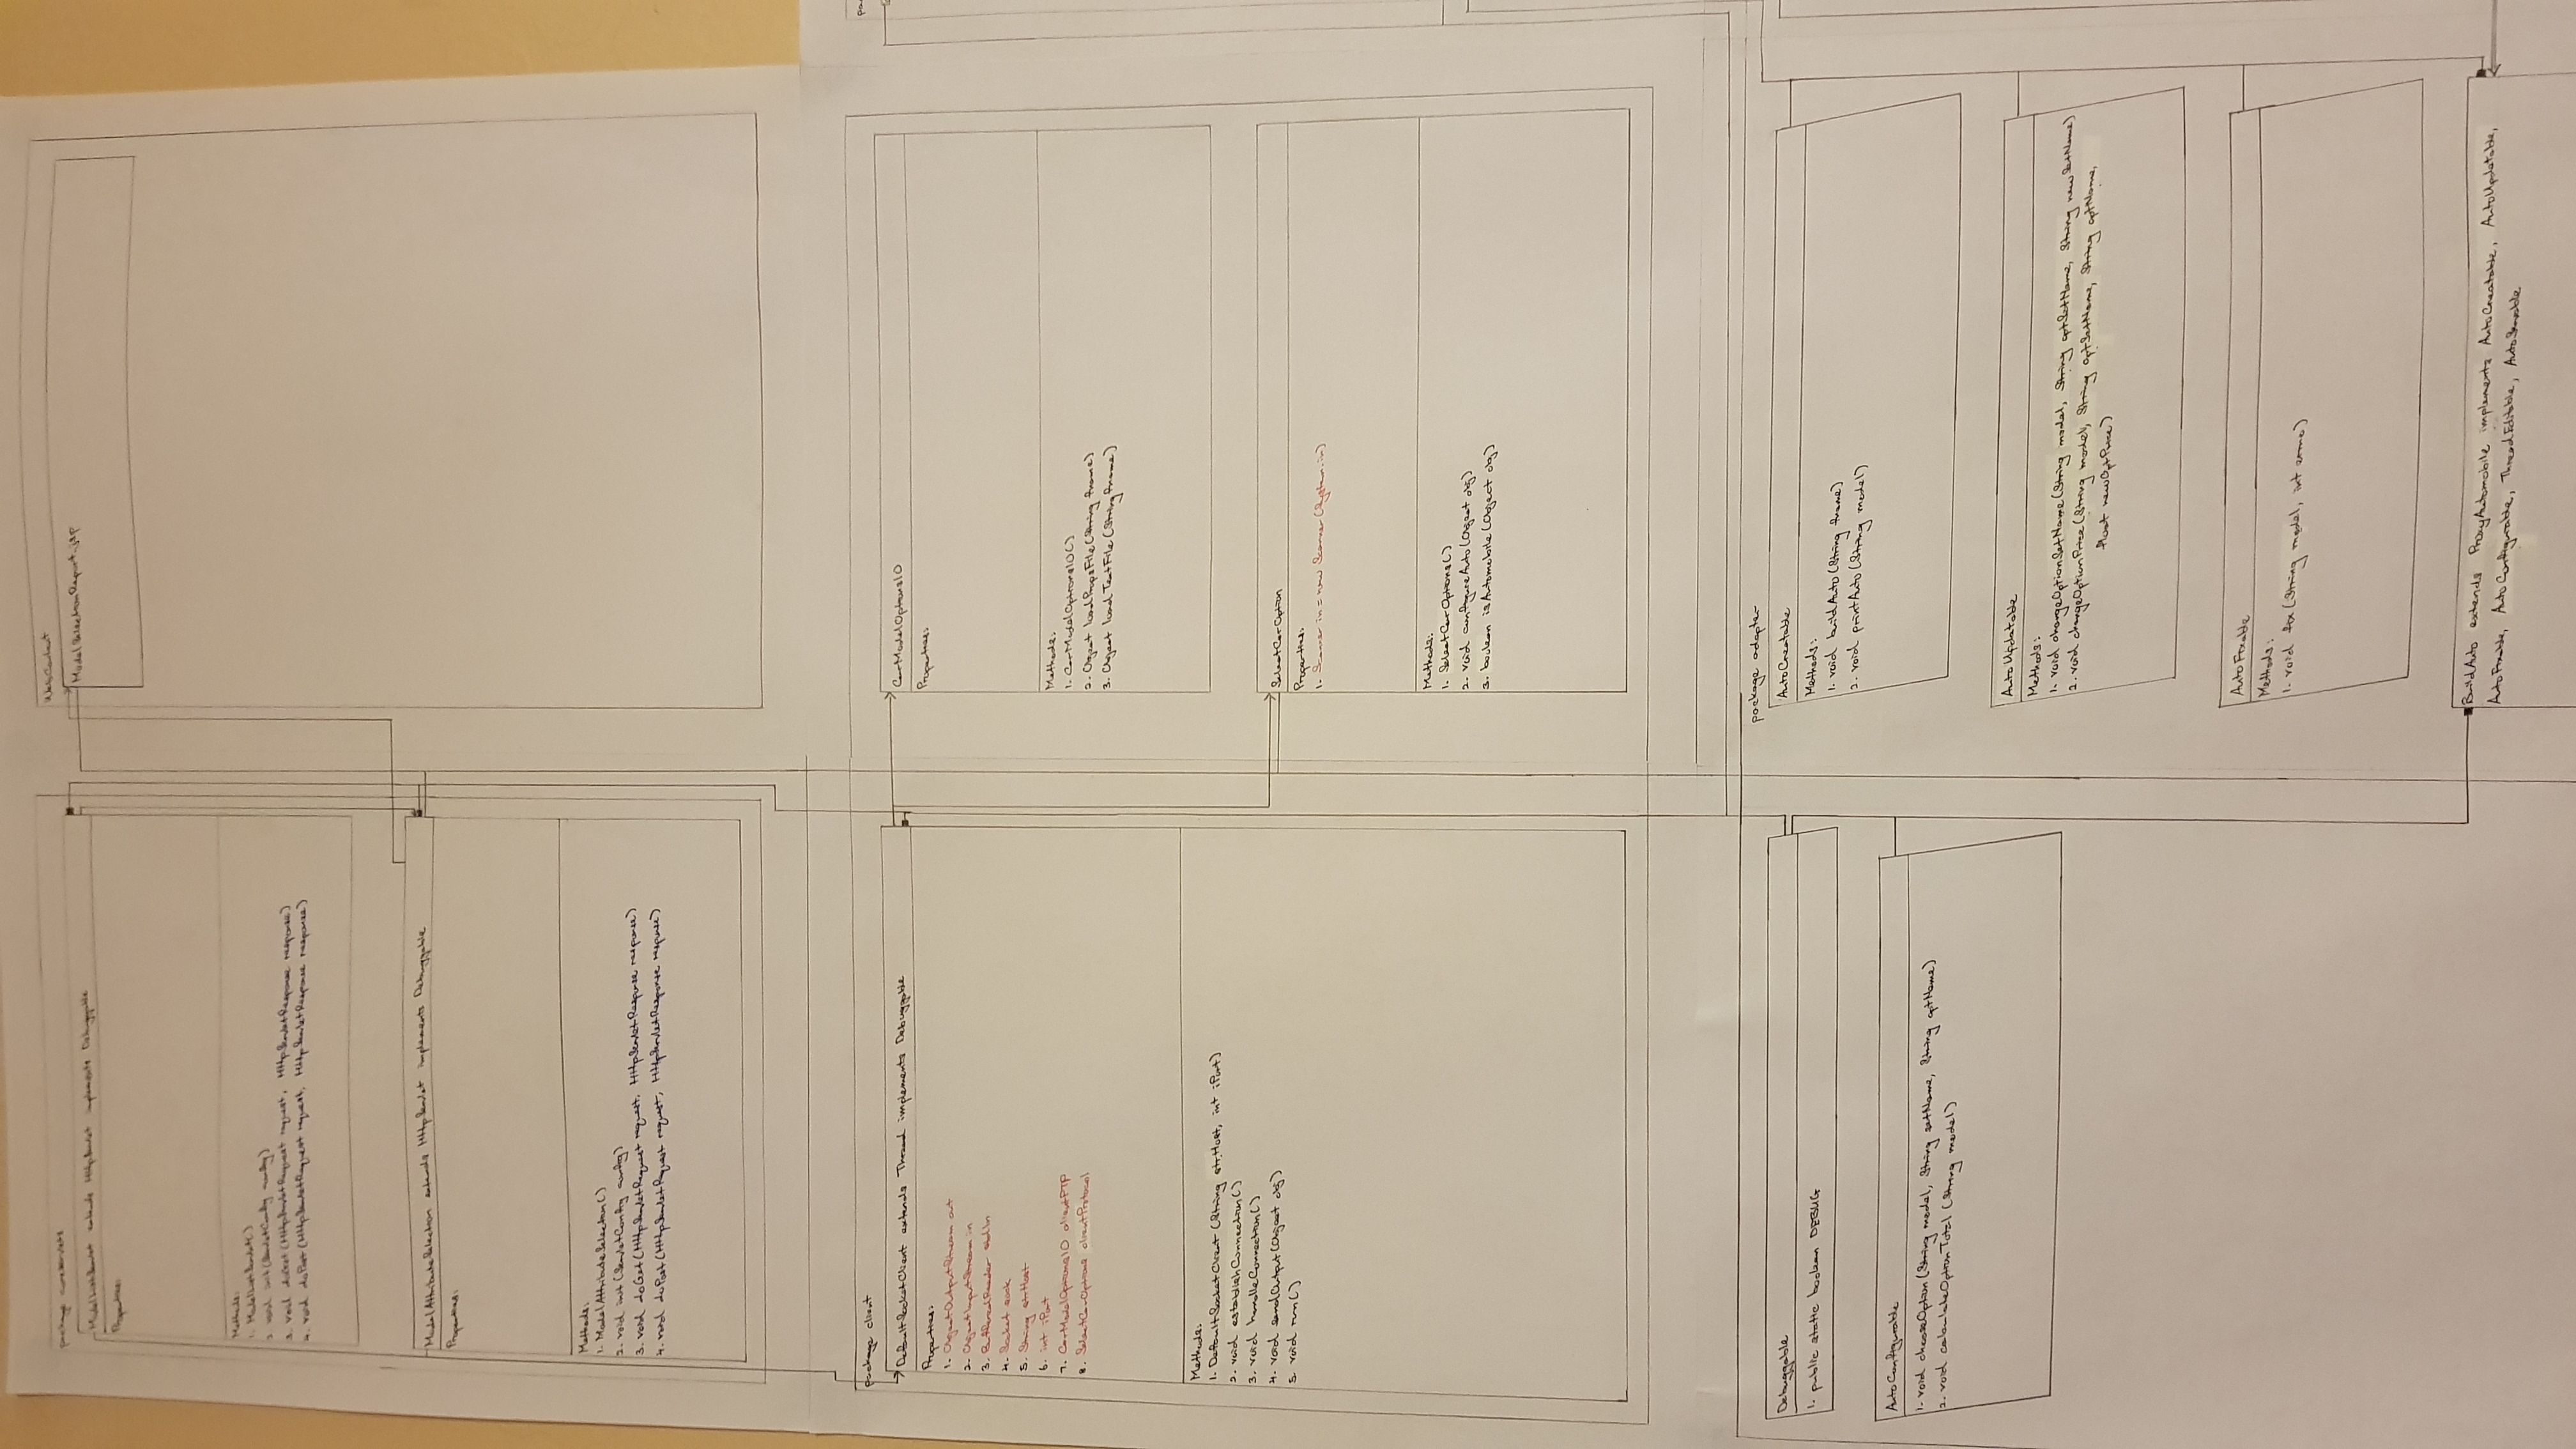 package coreServlets
ModelListServlet extends HttpServlet implements Debuggable
Properties:
Methods:
1. ModelListServlet()
2. void init(ServletConfig config)
3. void doGet(HttpServletRequest request, HttpServletResponse response)
4. void doPost(HttpServletRequest request, HttpServletResponse response)
ModelAttributeSelection extends HttpServlet implements Debuggable
Properties:
Methods:
1. ModelAttributeSelection()
2. void init(ServletConfig config)
3. void doGet(HttpServletRequest request, HttpServletResponse response)
4. void doPost(HttpServletRequest request, HttpServletResponse response)
WebContent
ModelSelectionReport.jsp
package client
DefaultSocketClient extends Thread implements Debuggable
Properties:
1. ObjectOutputStream out
2. ObjectInputStream in
3. BufferedReader stdIn
4. Socket sock
5. String strHost
6. int iPort
7. CarModelOptionsIO clientFTP
8. SelectCarOptions clientProtocol
Methods:
1. DefaultSocketClient(String strHost, int iPort)
2. void establishConnection()
3. void handleConnection()
4. void sendOutput(Object obj)
5. void run()
CarModelOptionsIO
Properties:
Methods:
1. CarModelOptionsIO()
2. Object loadPropsFile(String fname)
3. Object loadTextFile(String fname)
SelectCarOption
Properties:
1. Scanner in = new Scanner(System.in)
Methods:
1. SelectCarOptions()
2. void configureAuto(Object obj)
3. boolean isAutomobile(Object obj)
package adapter
Debuggable
1. public static boolean DEBUG
AutoConfigurable
1. void chooseOption(String model, String setName, String optName)
2. void calculateOptionTotal(String model)
AutoCreatable
Methods:
1. void buildAuto(String fname)
2. void printAuto(String model)
AutoUpdatable
Methods:
1. void changeOptionSetName(String model, String optSetName, String newSetName)
2. void changeOptionPrice(String model, String optSetName, String optName,
float newOptPrice)
AutoFixable
Methods:
1. void fix(String model, int errno)
BuildAuto extends ProxyAutomobile implements AutoCreatable, AutoUpdatable,
AutoFixable, AutoConfigurable, ThreadEditable, AutoServable